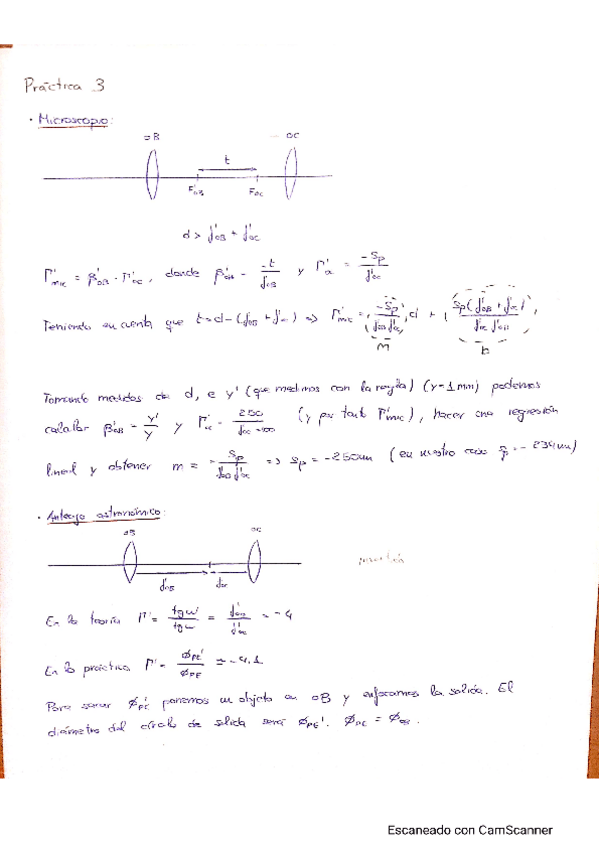 Práctica 3
· Microscopio:
OB OC
t
F'OB FOC
d > f'OB + f'OC
Γ'mic = β'OB · Γ'OC, donde β'OB = -t/f'OB y Γ'OC = -Sp/f'OC
Teniendo en cuenta que t = d - (f'OB + f'OC) => Γ'mic = (-Sp/(f'OB f'OC)) d + Sp(f'OB + f'OC)/(f'OC f'OB)
m b
Tomando medidas de d, e y' (que medimos con la regla) (y = 1 mm) podemos
calcular β'OB = y'/y y Γ'OC = 250/f'OC (y por tanto Γ'mic), hacer una regresión
lineal y obtener m = -Sp/(f'OB f'OC) => Sp = -250mm (en nuestro caso Sp = -234mm)
· Anteojo astronómico:
OB OC
f'OB f'OC
En la teoría Γ' = tg w'/tg w = f'OB/f'OC = -4
En la práctica Γ' = ØPE'/ØPE = -4,1
Para sacar Ø'PE ponemos un objeto en OB y enfocamos la salida. El
diámetro del círculo de salida será ØPE'. ØPE = ØOB.
Escaneado con CamScanner